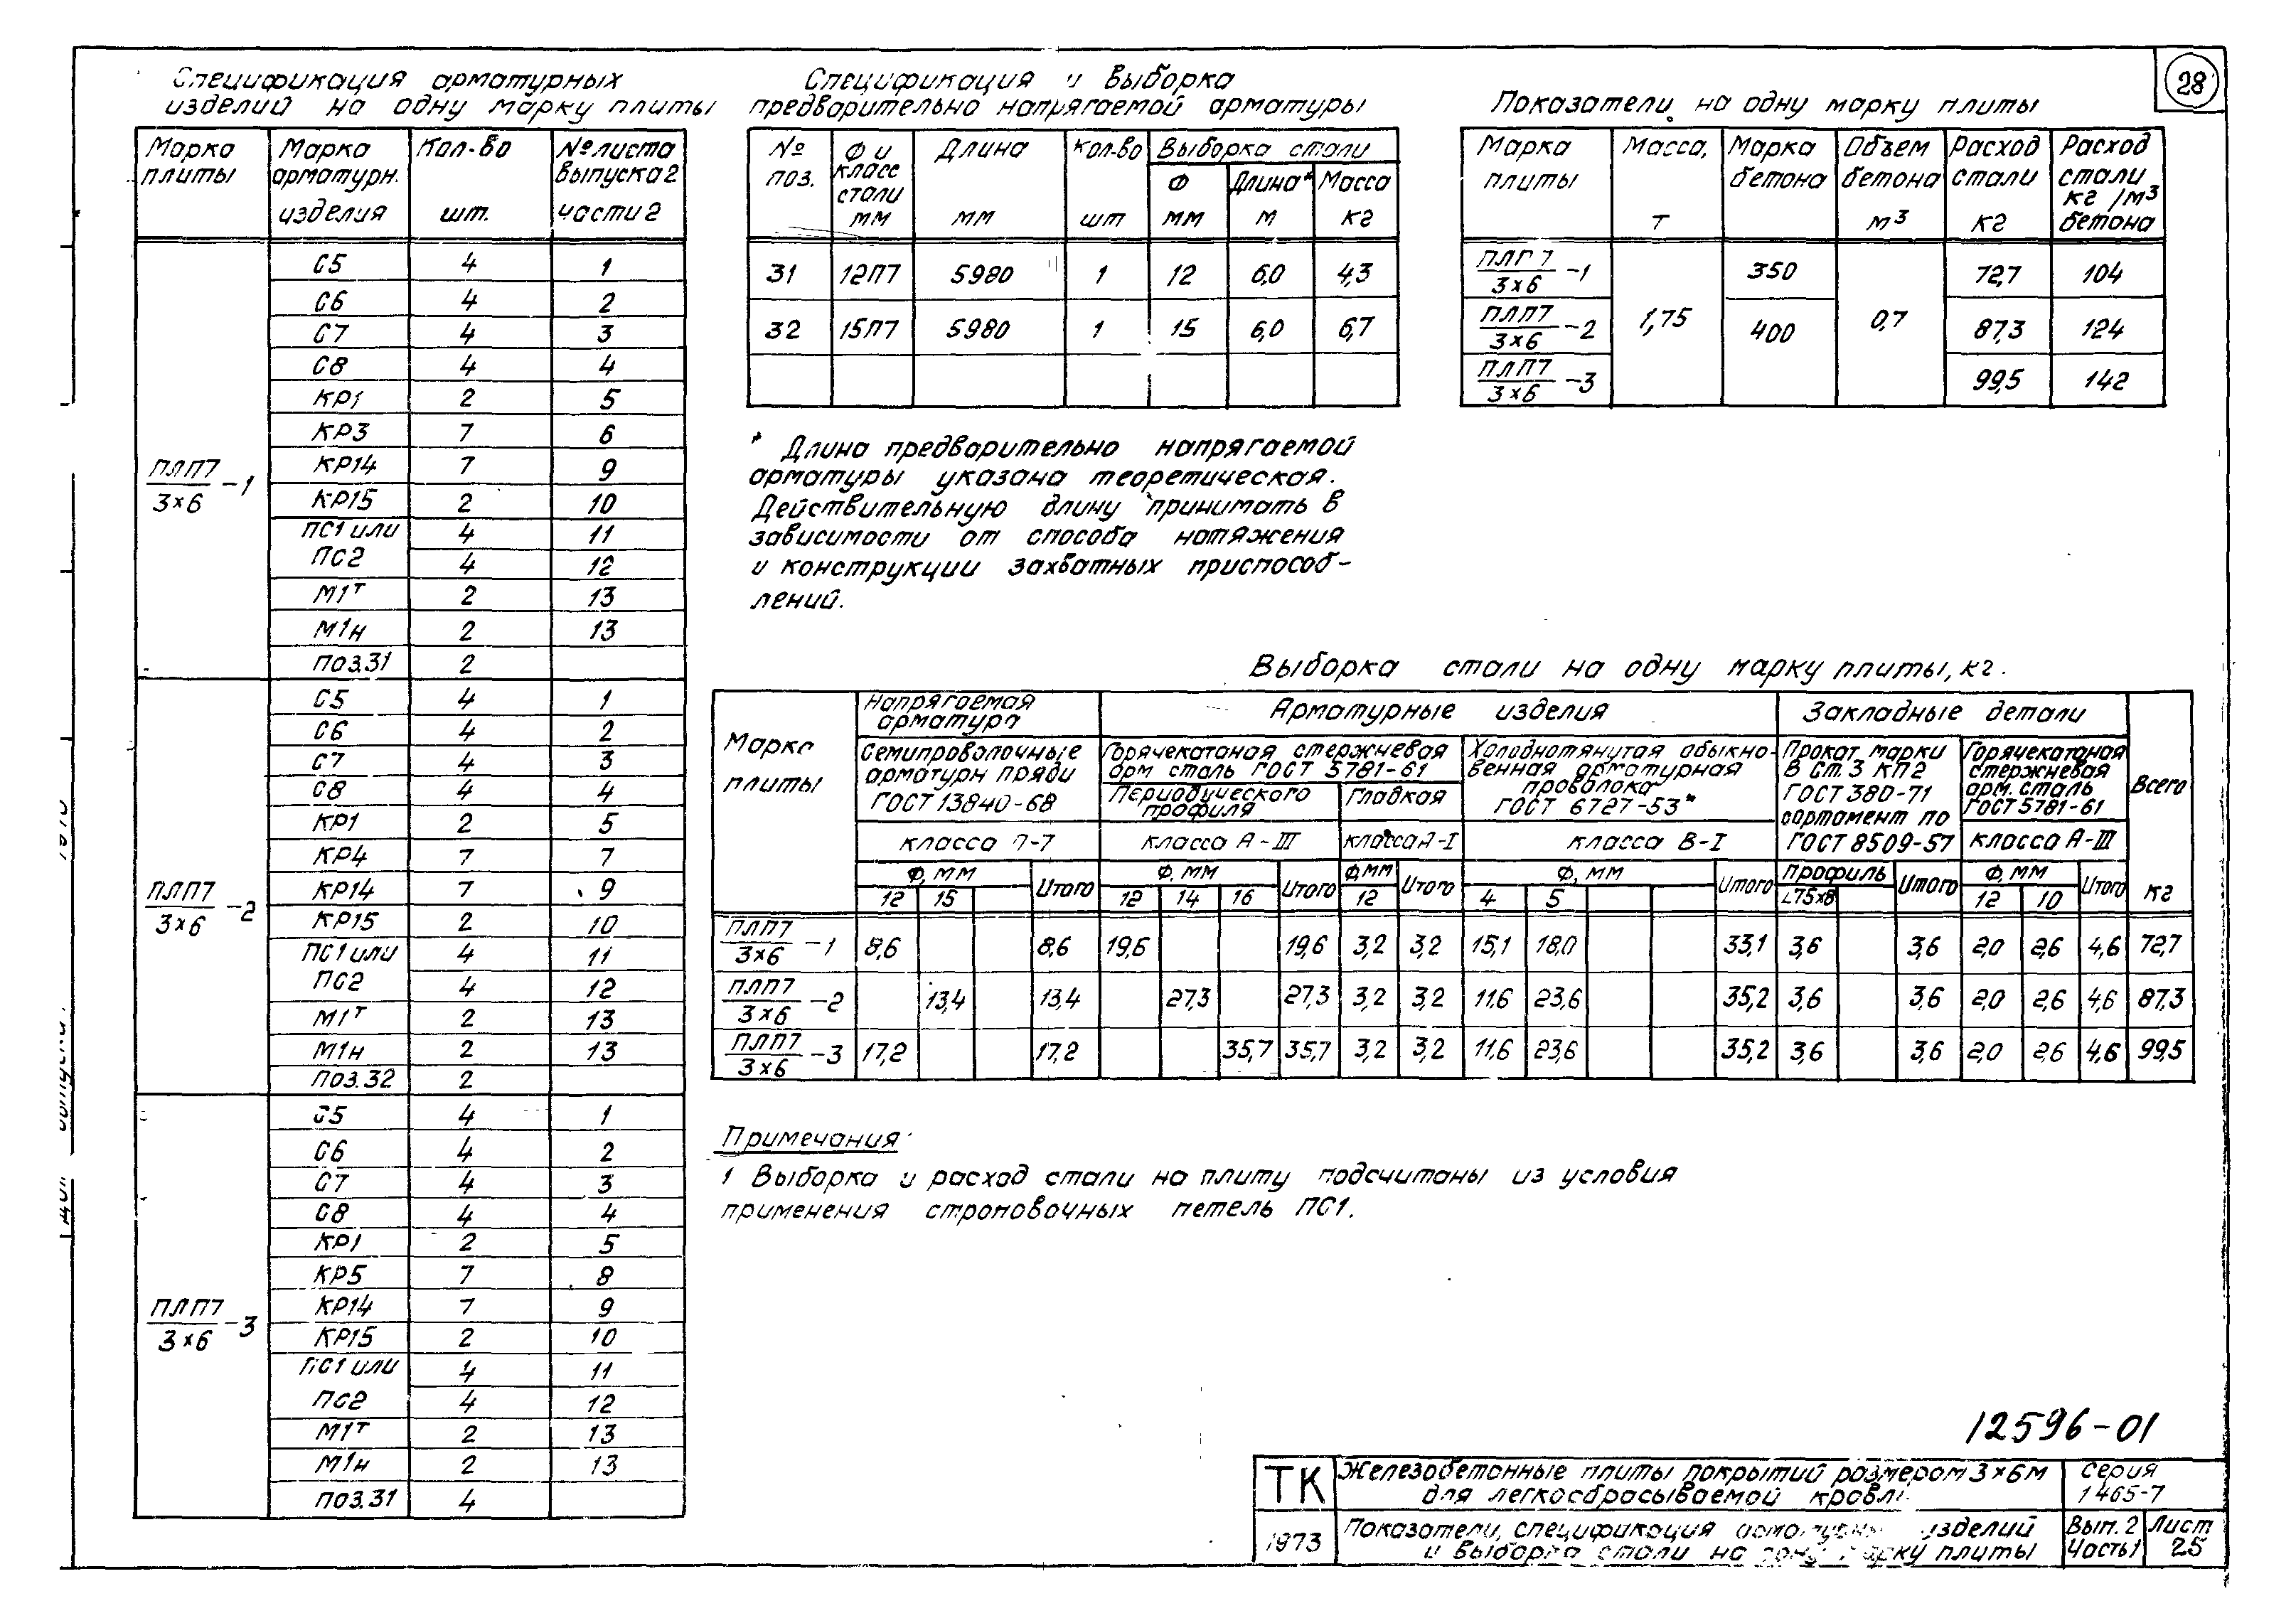 28
Спецификация арматурных
изделий на одну марку плиты
Марка плиты | Марка арматурн. изделия | Кол-во шт. | № листа выпуска 2 части 2
ПЛП7/3×6 -1
С5 4 1
С6 4 2
С7 4 3
С8 4 4
КР1 2 5
КР3 7 6
КР14 7 9
КР15 2 10
ПС1 или 4 11
ПС2 4 12
М1т 2 13
М1н 2 13
поз.31 2
ПЛП7/3×6 -2
С5 4 1
С6 4 2
С7 4 3
С8 4 4
КР1 2 5
КР4 7 7
КР14 7 9
КР15 2 10
ПС1 или 4 11
ПС2 4 12
М1т 2 13
М1н 2 13
поз.32 2
ПЛП7/3×6 -3
С5 4 1
С6 4 2
С7 4 3
С8 4 4
КР1 2 5
КР5 7 8
КР14 7 9
КР15 2 10
ПС1 или 4 11
ПС2 4 12
М1т 2 13
М1н 2 13
поз.31 4
Спецификация и выборка
предварительно напрягаемой арматуры
№ поз. | Ф и класс стали мм | Длина мм | кол-во шт | Выборка стали
Ф мм | Длина* м | Масса кг
31 12П7 5980 1 12 6,0 4,3
32 15П7 5980 1 15 6,0 6,7
* Длина предварительно напрягаемой
арматуры указана теоретическая.
Действительную длину принимать в
зависимости от способа натяжения
и конструкции захватных приспособ-
лений.
Показатели на одну марку плиты
Марка плиты | Масса, т | Марка бетона | Объем бетона м³ | Расход стали кг | Расход стали кг/м³ бетона
ПЛП7/3×6 -1 1,75 350 0,7 72,7 104
ПЛП7/3×6 -2 400 87,3 124
ПЛП7/3×6 -3 99,5 142
Выборка стали на одну марку плиты, кг.
Марка плиты | Напрягаемая арматура | Арматурные изделия | Закладные детали | Всего кг
Семипроволочные арматурн пряди ГОСТ 13840-68 | Горячекатаная стержневая арм сталь ГОСТ 5781-61 | Холоднотянутая обыкно-венная арматурная проволока ГОСТ 6727-53* | Прокат марки В Ст.3 КП2 ГОСТ 380-71 сортамент по ГОСТ 8509-57 | Горячекатаная стержневая арм. сталь ГОСТ 5781-61
Периодического профиля | Гладкая
класса П-7 | класса А-III | класса А-I | класса В-I | класса А-III
Ф, мм | Итого | Ф, мм | Итого | Ф мм | Итого | Ф, мм | Итого | Профиль | Итого | Ф, мм | Итого
12 15 | 12 14 16 | 12 | 4 5 | L75×8 | 12 10
ПЛП7/3×6 -1 8,6 8,6 19,6 19,6 3,2 3,2 15,1 18,0 33,1 3,6 3,6 2,0 2,6 4,6 72,7
ПЛП7/3×6 -2 13,4 13,4 27,3 27,3 3,2 3,2 11,6 23,6 35,2 3,6 3,6 2,0 2,6 4,6 87,3
ПЛП7/3×6 -3 17,2 17,2 35,7 35,7 3,2 3,2 11,6 23,6 35,2 3,6 3,6 2,0 2,6 4,6 99,5
Примечания:
1 Выборка и расход стали на плиту подсчитаны из условия
применения строповочных петель ПС1.
12596-01
ТК
1973
Железобетонные плиты покрытий размером 3×6м
для легкосбрасываемой кровли
серия
1 465-7
Показатели, спецификация арматурных изделий
и выборка стали на одну марку плиты
Вып. 2
Часть 1
Лист
25